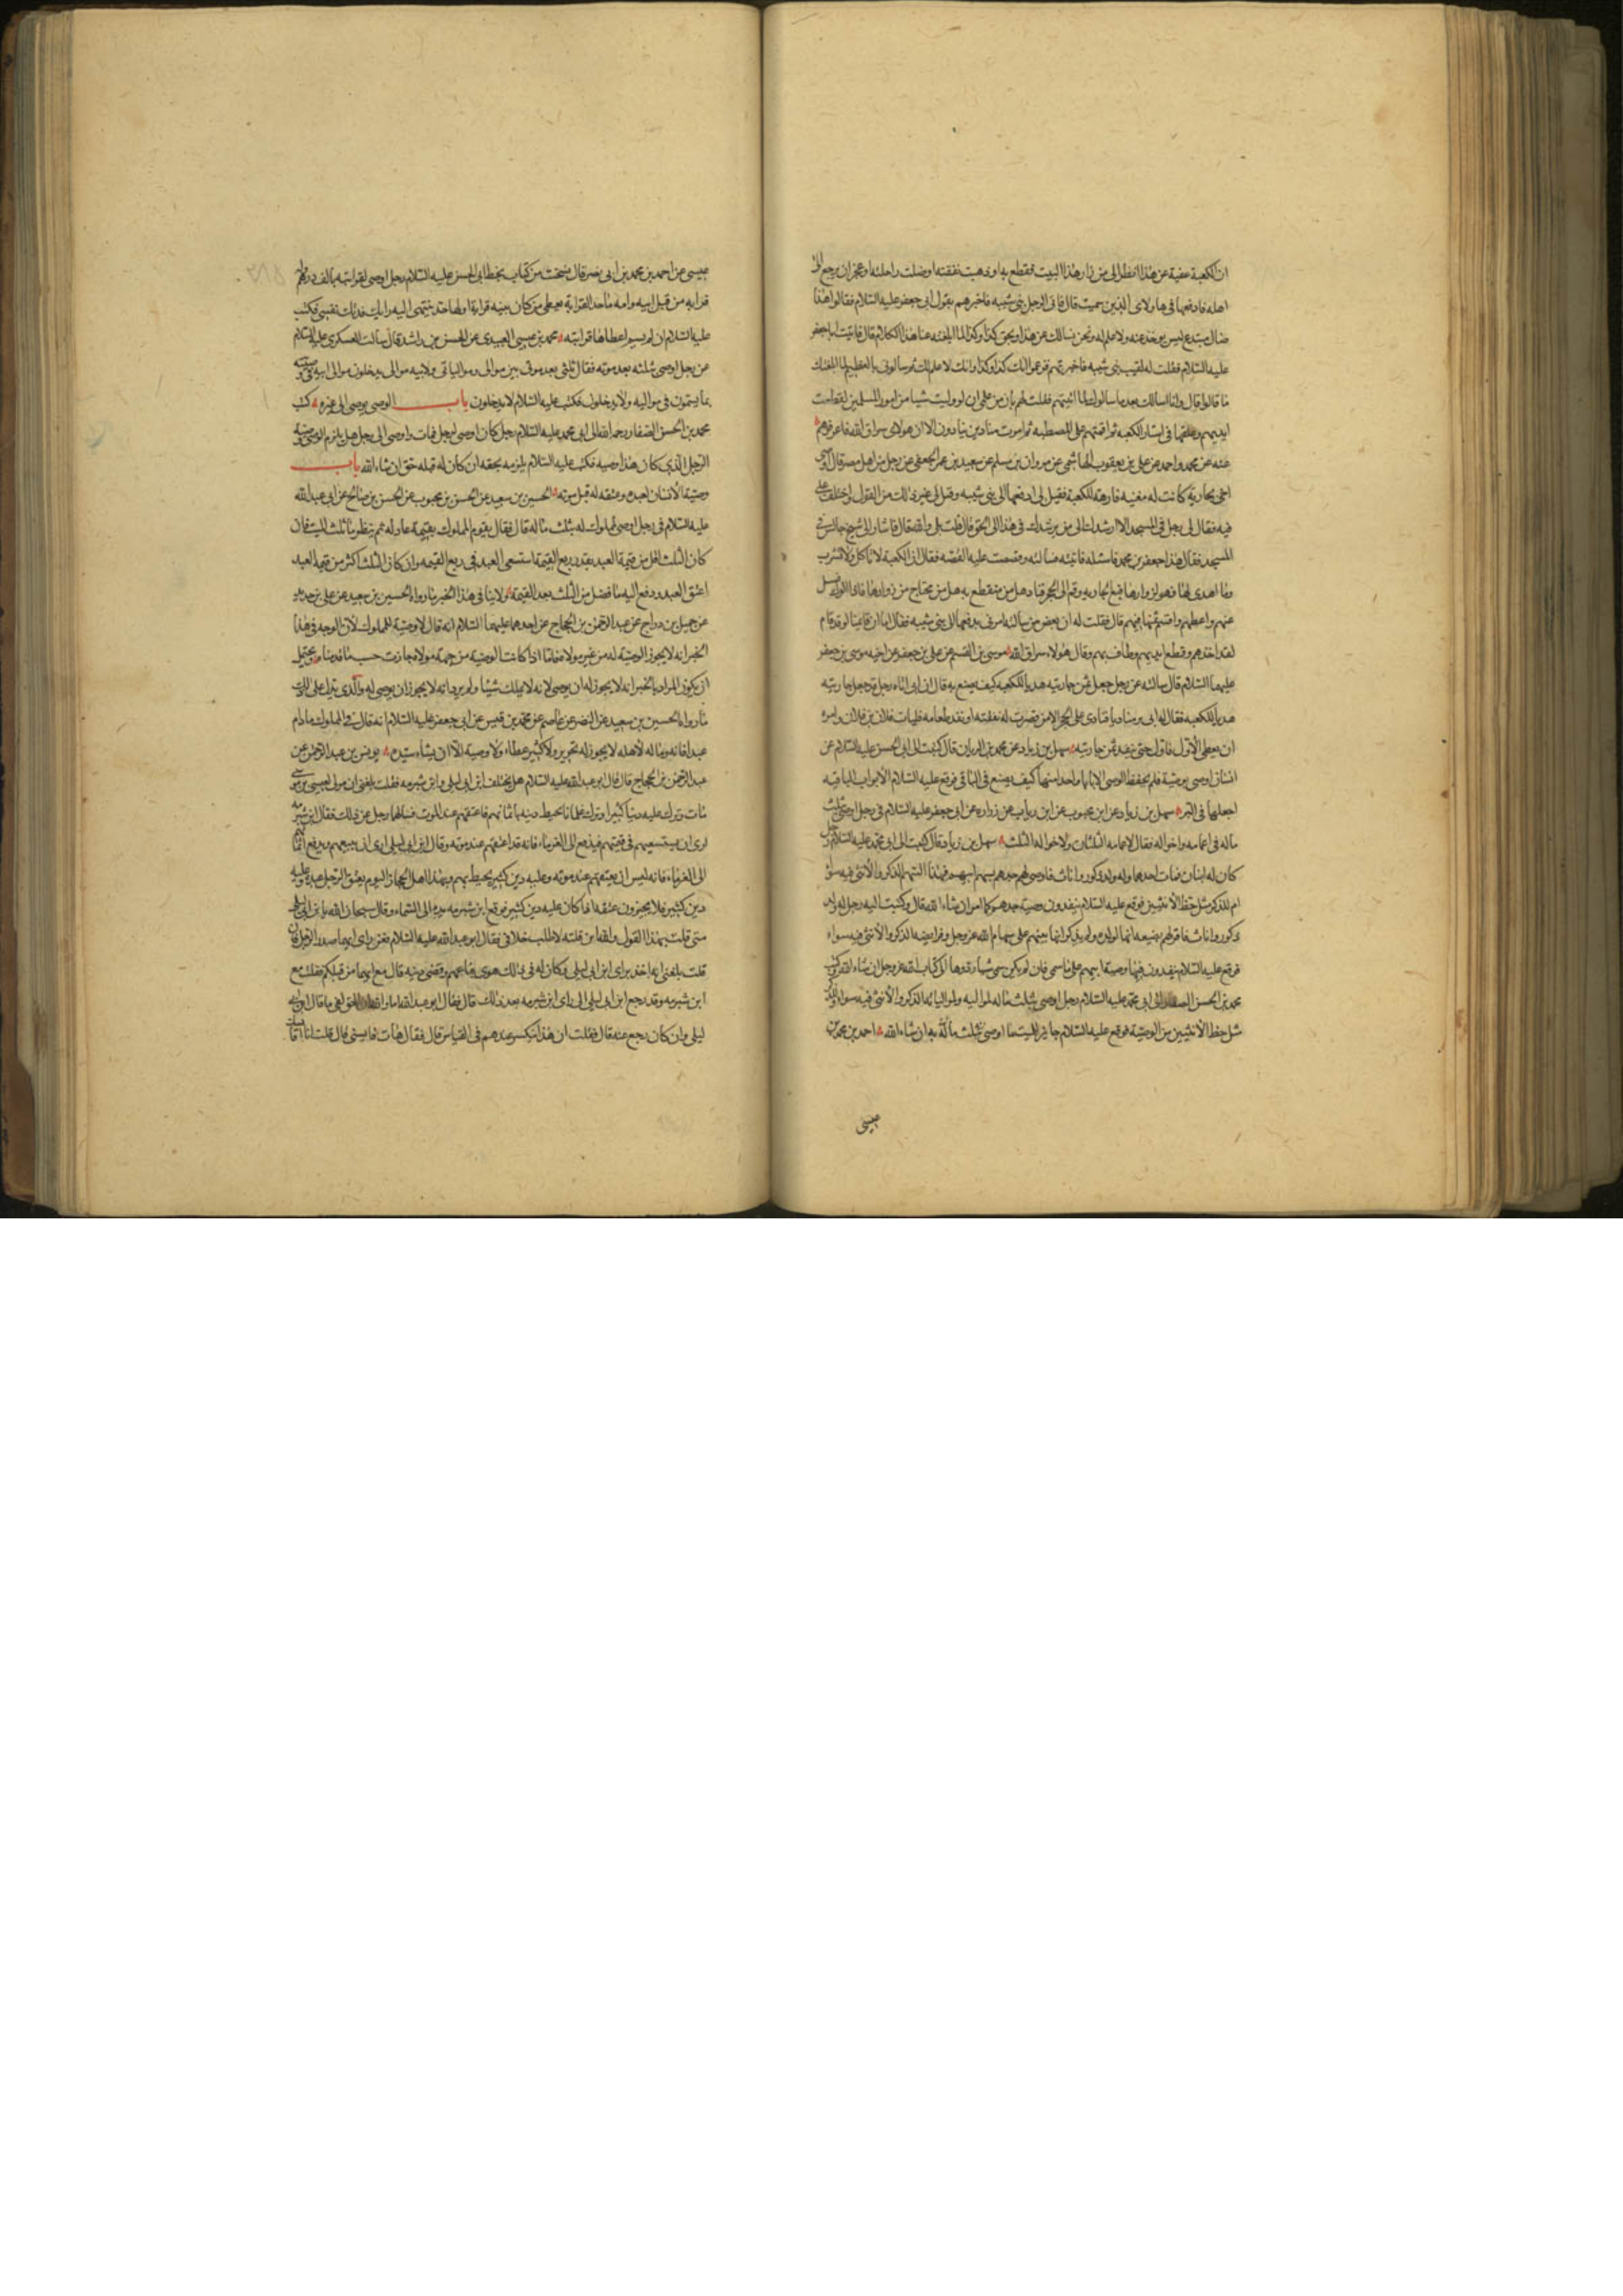 ان الكعبة غنية عن هذا انظر الى من زار هذا البيت فقطع به او ذهبت نفقته او ضلت راحلته او عجز ان يرجع الى
اهله فادفعها فى هاولاى الذين سميت قال فاتى الرجل بنى شيبه فاخبرهم بقول ابى جعفر عليه السلام فقالوا هذا
ضال مبتدع ليس يوخذ عنه ولا علم له ونحن نسالك عن هذا وبحق كذا وكذا لما ابلغته عنا هذا الكلام قال فاتيت ابا جعفر
عليه السلام فقلت له لقيت بنى شيبه فاخبرتهم فزعموا انك كذا وكذا وانك لا علم لك ثم سالونى بالعظيم لما ابلغتك
ما قالوا قال وانا اسالك بما سالوك لما اتيتهم فقلت لهم بان من علمى ان لو وليت شيا من امور المسلمين لقطعت
ايديهم وعلقتها فى استار الكعبه ثم اقمتهم على المصطبه ثم امرت منادين ينادون الا ان هولاى سراق الله فاعرفوهم
عنه عن محمد واحمد عن على بن يعقوب الهاشمى عن مروان بن مسلم عن سعيد بن عمر الجعفى عن رجل من اهل مصر قال اوصى
اخى بجارية كانت له مغنيه فارهه للكعبة فقيل لى ادفعها الى بنى شيبه وقيل لى غير ذلك من القول فاختلف على
فيه فقال لى رجل فى المسجد الا ارشدك الى من يرشدك فى هذا الى الحق قال قلت بلى والله قال فاشار الى شيخ جالس فى
المسجد فقال هذا جعفر بن محمد فاسئله فاتيته فسالته وقصصت عليه القصه فقال ان الكعبة لا تاكل ولا تشرب
وما اهدى لها فهو لزوارها فبع الجاريه وقم الى الحجر فناد هل من منقطع به هل من محتاج من زوارها فاذا اتوك فسل
عنهم واعطهم واقسم ثمنها فيهم قال فقلت له ان بعض من سالته امرنى بدفعها الى بنى شيبه فقال اما ان قائمنا لو قد قام
لقد اخذهم وقطع ايديهم وطاف بهم وقال هولاء سراق الله موسى بن القسم عن على بن جعفر عن اخيه موسى بن جعفر
عليهما السلام قال سالته عن رجل جعل ثمن جاريته هديا للكعبه كيف يصنع به قال ان ابى اتاه رجل قد جعل جاريته
هديا للكعبه فقال له ابى مر مناديا فنادى على الحجر الا من قصرت له نفقته او نفد طعامه فليات فلان بن فلان وامره
ان يعطى الاول فاول حتى ينفد ثمن جاريته سهل بن زياد عن محمد بن الريان قال كتبت الى ابى الحسن عليه السلام عن
انسان اوصى بوصية فلم يحفظ الوصى الا بابا واحدا منها كيف يصنع فى الباقى فوقع عليه السلام الابواب الباقيه
اجعلها فى البر سهل بن زياد عن ابن محبوب عن ابن رياب عن زراره عن ابى جعفر عليه السلام فى رجل اوصى بثلث
ماله فى اعمامه واخواله فقال لاعمامه الثلثان ولاخواله الثلث سهل بن زياد قال كتبت الى ابى محمد عليه السلام رجل
كان له ابنان فمات احدهما وله ولد ذكور واناث فاوصى لهم جدهم بسهم ابيهم فهذا السهم الذكر والانثى فيه سواء
ام للذكر مثل حظ الانثيين فوقع عليه السلام ينفذون وصية جدهم كما امر ان شاء الله قال وكتبت اليه رجل له ولد
ذكور واناث فاقر لهم بضيعه انها لولده ولم يذكر انها بينهم على سهام الله عز وجل وفرايضه الذكر والانثى فيه سواء
فوقع عليه السلام ينفذون فيها وصية ابيهم على ما سمى فان لم يكن سمى شيا ردوها الى كتاب الله عز وجل ان شاء الله وكتب
محمد بن الحسن الصفار الى ابى محمد عليه السلام رجل اوصى بثلث ماله لمواليه ولموالياته الذكر والانثى فيه سواء وللذكر
مثل حظ الانثيين من الوصية فوقع عليه السلام جايز للميت ما اوصى به ان شاء الله احمد بن محمد بن
عيسى
عيسى عن احمد بن محمد بن ابى نصر قال نسخت من كتاب بخط ابى الحسن عليه السلام رجل اوصى لقرابته بالف درهم وله
قرابه من قبل ابيه وامه ما حد القرابة يعطى من كان بينه قرابة اولها حد ينتهى اليه رايك فدتك نفسى فكتب
عليه السلام ان لم يسم اعطاها قرابته محمد بن عيسى العبيدى عن الحسن بن راشد قال سالت العسكرى عليه السلام
عن رجل اوصى بثلثه بعد موته فقال ثلثى بعد موتى بين موالى وموالياتى ولابيه موالى يدخلون موالى ابيه فى وصيته
بما يسمون فى مواليه ولا يدخلون فكتب عليه السلام لا يدخلون باب الوصى يوصى الى غيره كتب
محمد بن الحسن الصفار رحمه الله الى ابى محمد عليه السلام رجل كان اوصى لرجل فمات واوصى الى رجل هل يلزم الوصى وصيته
الرجل الذى كان هذا وصيه فكتب عليه السلام يلزمه بحقه ان كان له قبله حق ان شاء الله باب
وصية الانسان لعبده وعتقه له قبل موته الحسين بن سعيد عن الحسن بن محبوب عن الحسن بن صالح عن ابى عبد الله
عليه السلام فى رجل اوصى لمملوك له بثلث ماله قال فقال يقوم المملوك بقيمة عادله ثم ينظر ما ثلث الميت فان
كان الثلث اقل من قيمة العبد بقدر ربع القيمة استسعى العبد فى ربع القيمه وان كان الثلث اكثر من قيمة العبد
اعتق العبد ودفع اليه ما فضل من الثلث بعد القيمة ولا ينافى هذا الخبر ما رواه الحسين بن سعيد عن على بن حديد
عن جميل بن دراج عن عبد الرحمن بن الحجاج عن احدهما عليهما السلام انه قال لا وصية للمملوك لان الوجه فى هذا
الخبر انه لا يجوز الوصية له من غير مولاه فاما اذا كانت الوصية من جهة مولاه جازت حسب ما قدمناه ويحتمل
ان يكون المراد بالخبر انه لا يجوز له ان يوصى لانه لا يملك شيئا ولم يرد انه لا يجوز ان يوصى له والذى يدل على ذلك
ما رواه الحسين بن سعيد عن النضر عن عاصم عن محمد بن قيس عن ابى جعفر عليه السلام انه قال فى المملوك ما دام
عبدا فانه وماله لاهله لا يجوز له تحرير ولا كثير عطاء ولا وصية الا ان يشاء سيده يونس بن عبد الرحمن عن
عبد الرحمن بن الحجاج قال قال ابو عبد الله عليه السلام هل يختلف ابن ابى ليلى وابن شبرمه فقلت بلغنى ان مولى لعيسى بن موسى
مات وترك عليه دينا كثيرا وترك غلمانا يحيط دينه باثمانهم فاعتقهم عند الموت فسالهما رجل عن ذلك فقال ابن شبرمه
ارى ان يستسعيهم فى قيمتهم فيدفع الى الغرماء فانه قد اعتقهم عند موته وقال ابن ابى ليلى ارى ان يبيعهم ويدفع اثمانهم
الى الغرماء فانه ليس ان يعتقهم عند موته وعليه دين كثير يحيط بهم وهذا اهل الحجاز اليوم يعتق الرجل عبده وعليه
دين كثير فلا يجيزون عتقه اذا كان عليه دين كثير فرفع ابن شبرمه يده الى السماء وقال سبحان الله يا بن ابى ليلى
متى قلت بهذا القول والله ان قلته الا طلب خلافى فقال ابو عبد الله عليه السلام فعن راى ايهما صدر الرجل قال
قلت بلغنى انه اخذ براى ابن ابى ليلى وكان له فى ذلك هوى فباعهم وقضى دينه قال مع ايهما من قبلكم فقلت مع
ابن شبرمه وقد رجع ابن ابى ليلى الى راى ابن شبرمه بعد ذلك قال فقال ابو عبد الله اما والله ان الحق لفى ما قال ابن ابى
ليلى وان كان رجع عنه قال فقلت ان هذا ينكسر عندهم فى القياس قال فقال هات قايسنى قال قلت انا اقايسك